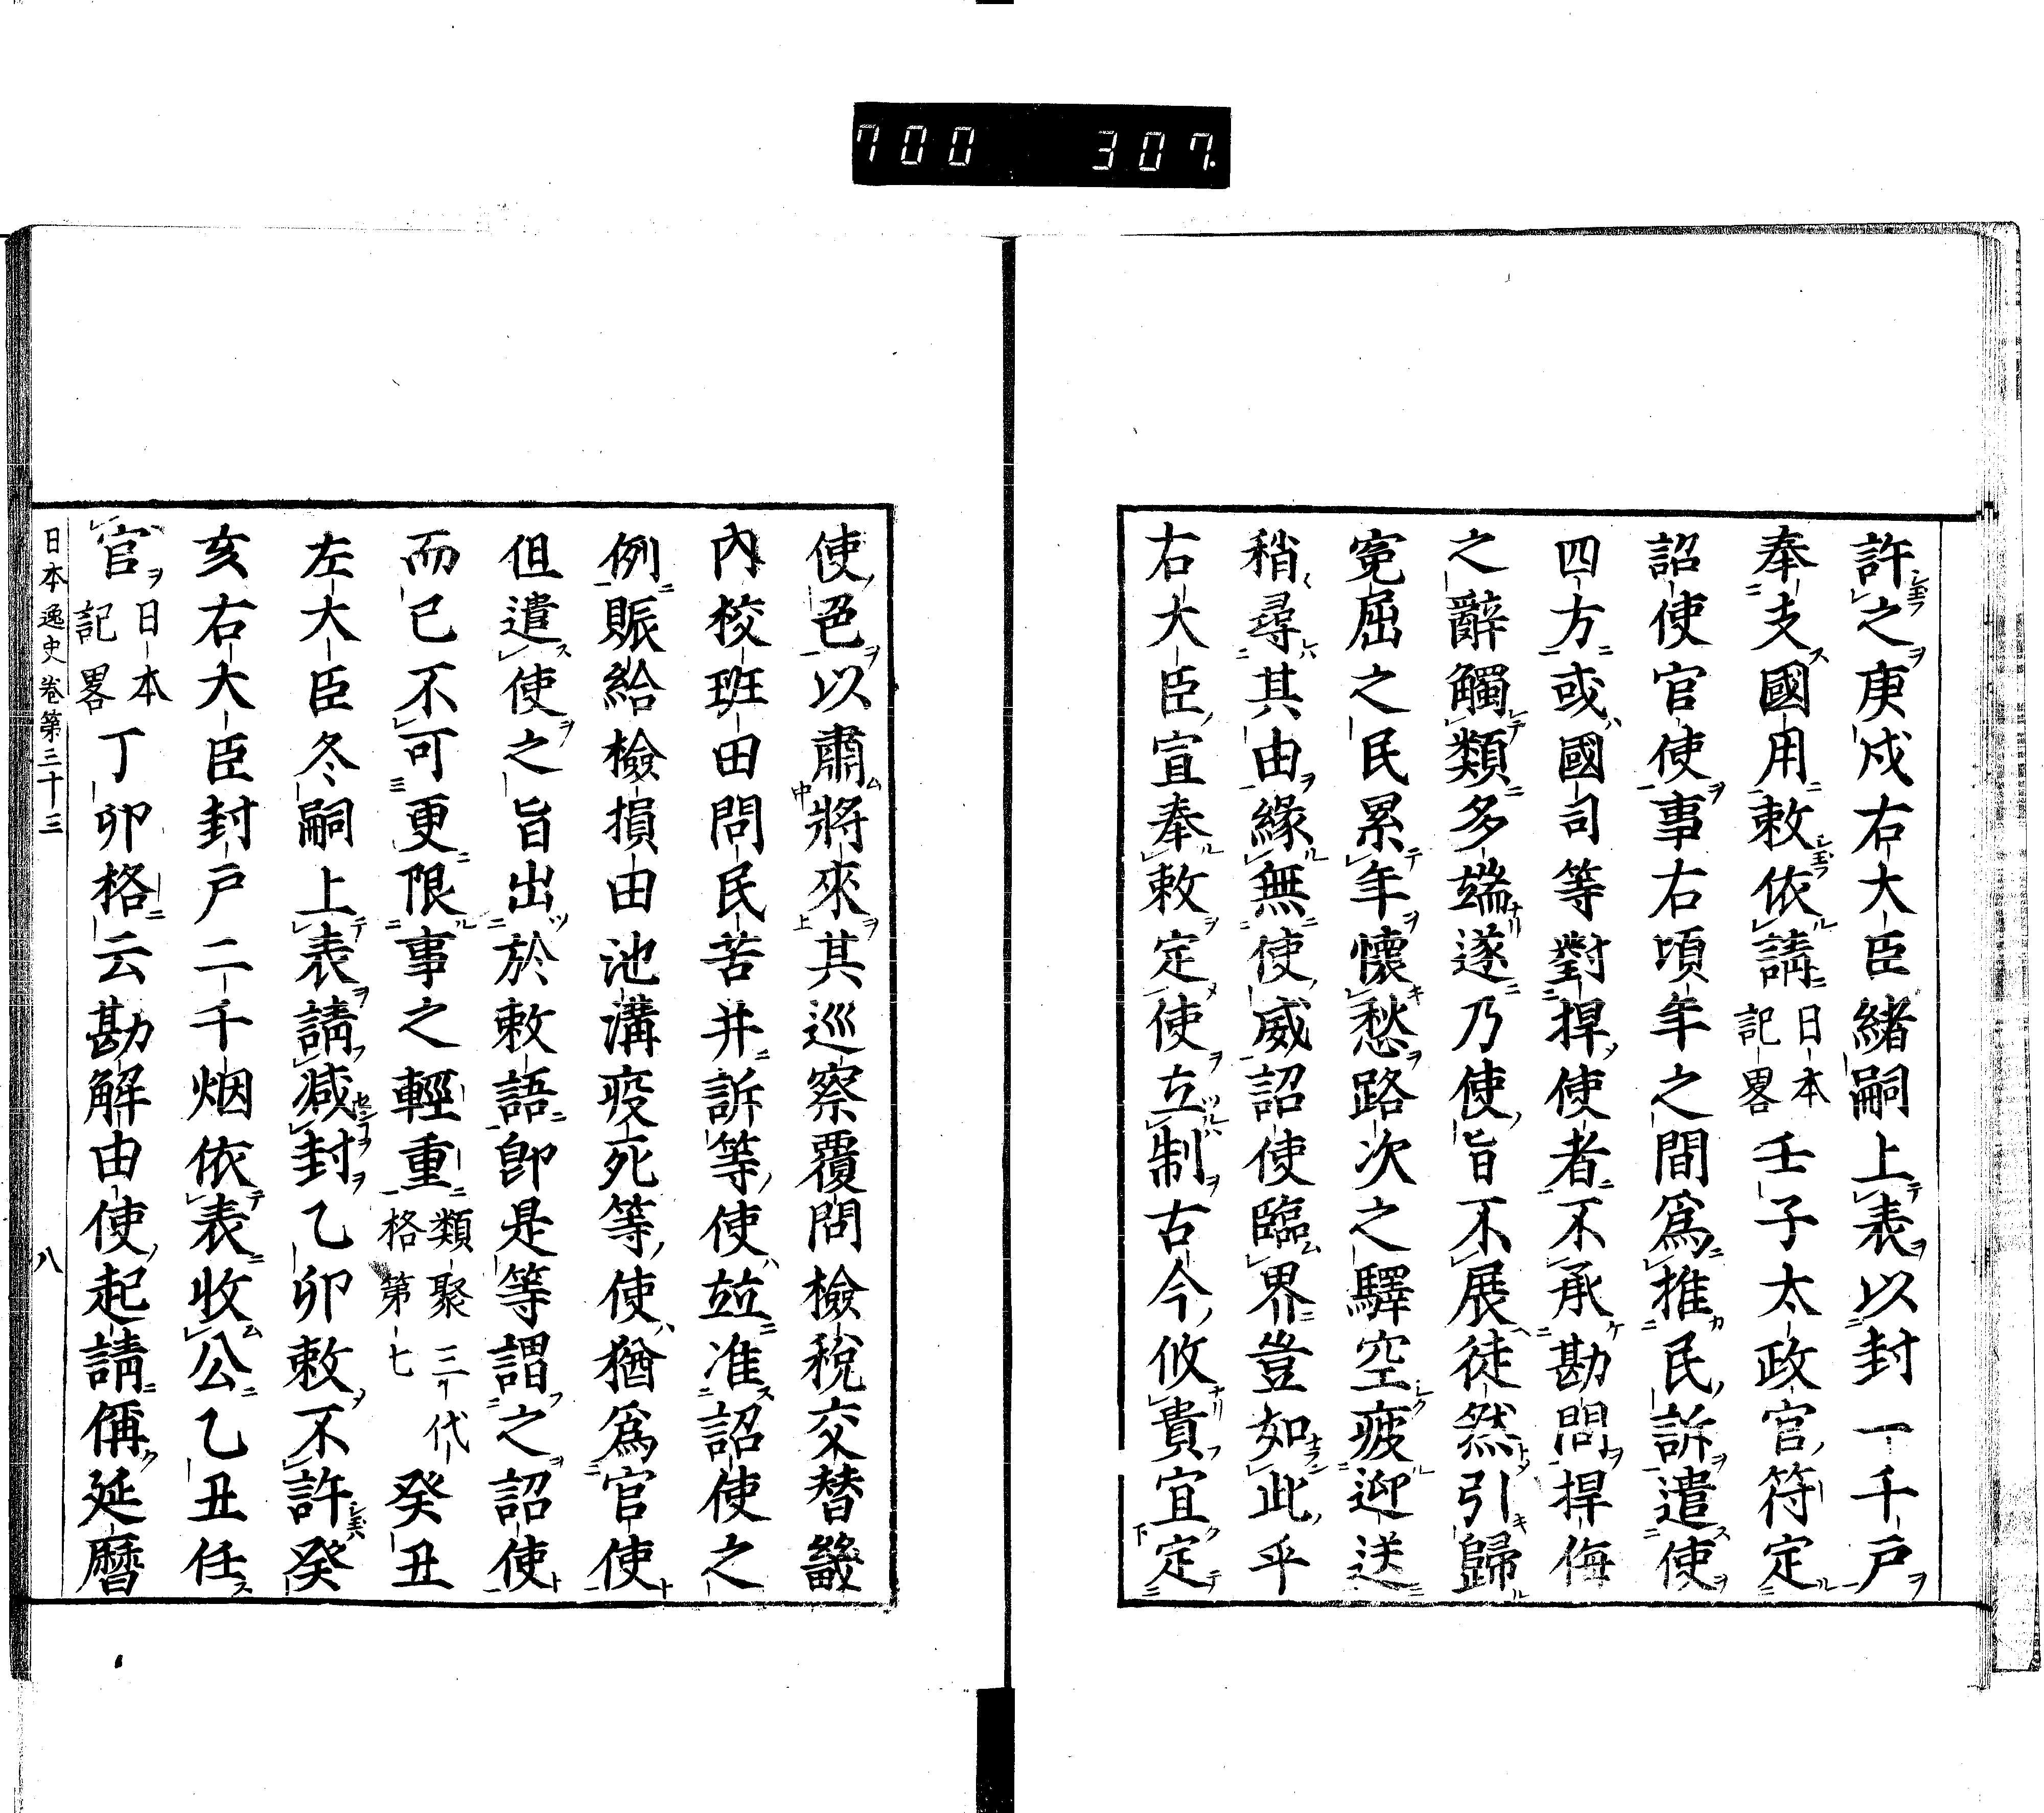 700 307
許之庚戌右大臣緒嗣上表以封一千戸
奉支國用敕依請日本記畧壬子太政官符定
詔使官使事右頃年之間爲推民訴遣使
四方或國司等對捍使者不承勘問捍侮
之辭觸類多端遂乃使旨不展徒然引歸
寃屈之民累年懷愁路次之驛空疲迎送
稍尋其由緣無使威詔使臨界豈如此乎
右大臣宣奉敕定使立制古今攸貴宜定
使色以肅將來其巡察覆問檢稅交替畿
內校班田問民苦并訴等使並准詔使之
例賑給檢損由池溝疫死等使猶爲官使
但遣使之旨出於敕語卽是等謂之詔使
而已不可更限事之輕重類聚三代格第七癸丑
左大臣冬嗣上表請減封乙卯敕不許癸
亥右大臣封戸二千烟依表收公乙丑任
官日本記畧丁卯格云勘解由使起請偁延曆
日本逸史卷第三十三 八